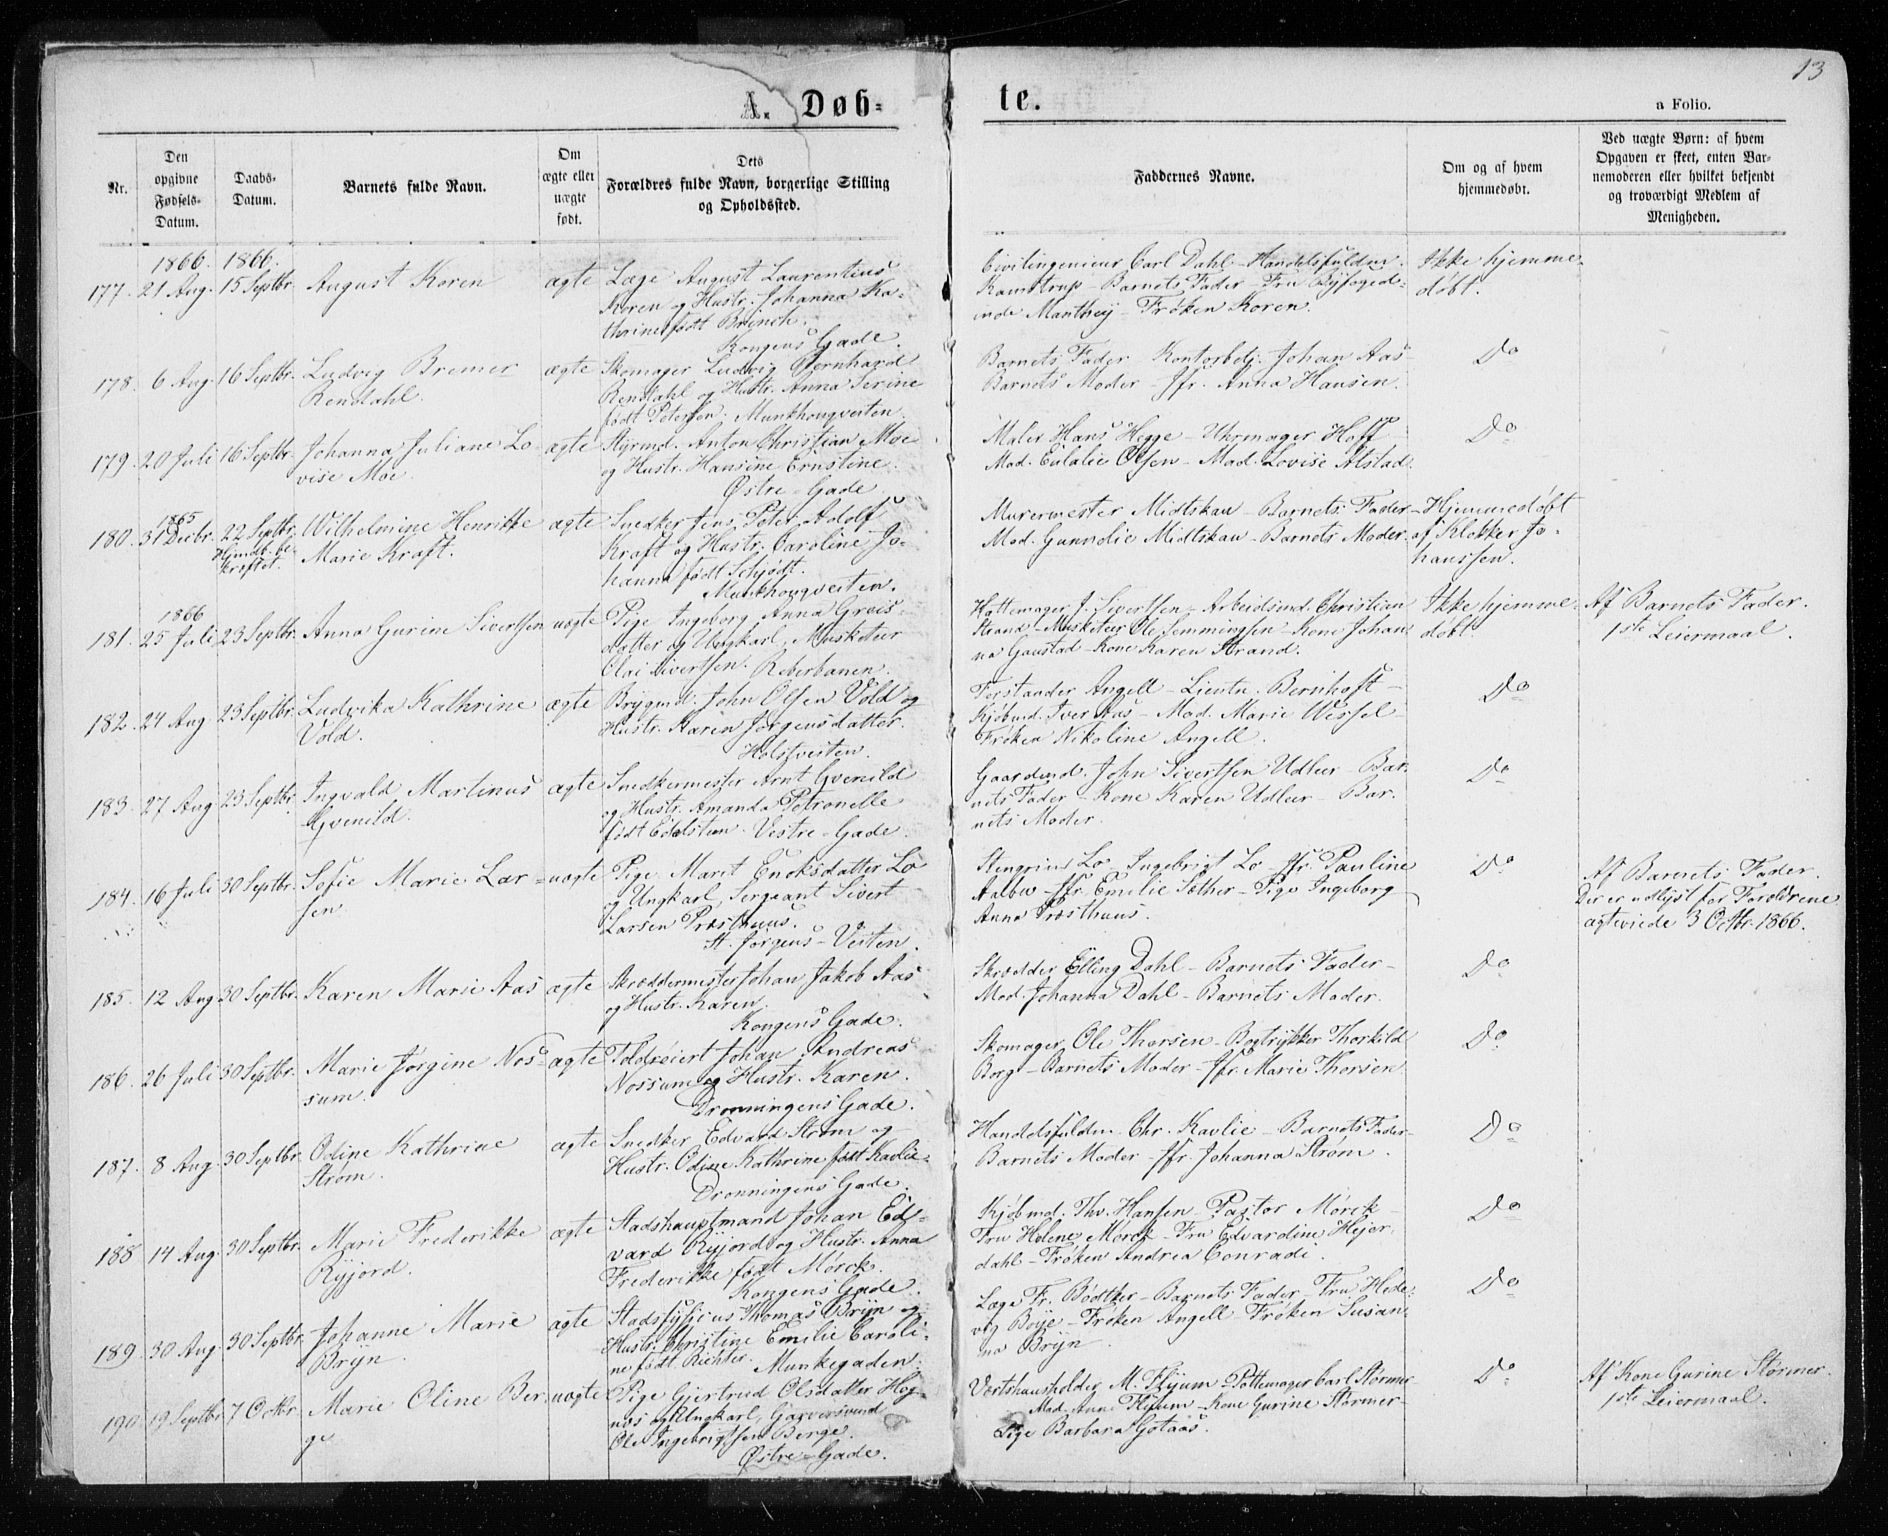 13
A. Døb-
te.
a Folio.
Nr.
Den
opgivne
Fødsels-
Datum.
Daabs-
Datum.
Barnets fulde Navn.
Om
ægte eller
uægte
født.
Dets
Forældres fulde Navn, borgerlige Stilling
og Opholdssted.
Faddernes Navne.
Om og af hvem
hjemmedøbt.
Ved uægte Børn: af hvem
Opgaven er skeet, enten Bar-
nemoderen eller hvilket bekjendt
og troværdigt Medlem af
Menigheden.
1866 1866.
177. 21 Aug. 15 Septbr. August Koren ægte
Læge August Laurentius
Koren og Hustr. Johanna Ka-
thrine født Brinch.
Kongens Gade.
Civilingenieur Carl Dahl - Handelsfuldm.
Kamstrup - Barnets Fader - Fru Byfoged-
inde Manthey - Frøken Koren.
Ikke hjemme-
døbt.
178. 6 Aug. 16 Septbr. Ludvig Bremer
Rendahl. ægte
Skomager Ludvig Bernhard
Rendahl og Hustr. Anna Serine
født Petersen. Munkhougveiten.
Barnets Fader - Kontorbetj. Johan Aas -
Barnets Moder - Jfr. Anna Hansen.
Do
179. 20 Juli 16 Septbr. Johanna Juliane Lo-
vise Moe. ægte
Styrmd. Anton Christian Moe
og Hustr. Hansine Ernstine.
Østre-Gade
Maler Hans Hegge - Uhrmager Hoff
Mad. Eulalie Olsen - Mad. Lovise Alstad.
Do
1865
180. 31 Decbr. 22 Septbr.
Hjmdb. be-
kræftet.
Wilhelmine Henrikke
Marie Kraft. ægte
Snedker Jens Peter Adolf
Kraft og Hustr. Caroline Jo-
hanna født Schjødt.
Munkhougveiten.
Murermester Midtskau - Barnets Fader -
Mad. Gunnelie Midtskau - Barnets Moder.
Hjemmedøbt
af Klokker Jo-
hanssen.
1866
181. 25 Juli 23 Septbr. Anna Gurine Sivertsen uægte
Pige Ingeborg Anna Greis-
datter og Ungkarl, Musketeer
Olai Sivertsen. Reberbanen.
Hattemager J. Sivertsen - Arbeidsmd. Christian
Strand - Musketeer Ole Lemmingsen - Kone Johan-
na Gaustad - Kone Karen Strand.
Ikke hjemme-
døbt.
Af Barnets Fader.
1ste Leiermaal.
182. 24 Aug. 23 Septbr. Ludvika Kathrine
Vold. ægte
Brygmd. John Olsen Vold og
Hustr. Karen Jørgensdatter.
Holstveiten.
Forstander Angell - Lieutn. Bernhoft -
Kjøbmd. Iver Aas - Mad. Marie Wessel
Frøken Nikoline Angell.
Do
183. 27 Aug 23 Septbr. Ingvald Martinus
Gvenild. ægte
Snedkermester Arnt Gvenild
og Hustr. Amanda Petronelle
født Edelsteen. Vestre-Gade.
Gaardmd. John Sivertsen Udleer - Bar-
nets Fader - Kone Karen Udleer - Bar-
nets Moder.
Do
184. 16 Juli 30 Septbr. Sofie Marie Lar-
sen. uægte
Pige Marit Enoksdatter Lo
og Ungkarl, Sergeant Sivert
Larsen Præsthuus.
St. Jørgens-Veiten.
Stengrim Lo. Ingebrigt Lo. Jfr. Pauline
Aalbu - Jfr. Emilie Sæther - Pige Ingeborg
Anna Præsthuus.
Do
Af Barnets Fader.
Der er udlyst for Forældrene.
ægteviede 3 Octbr. 1866.
185. 12 Aug 30 Septbr. Karen Marie Aas ægte
Skræddermester Johan Jakob Aas
og Hustr. Karen.
Kongens Gade.
Skrædder Elling Dahl - Barnets Fader -
Mad. Johanna Dahl - Barnets Moder.
Do
186. 26 Juli 30 Septbr. Marie Jørgine Nos-
sum. ægte
Toldroiert Johan Andreas
Nossum og Hustr. Karen.
Dronningens Gade.
Skomager Ole Thorsen - Bogtrykker Thorkild
Borg - Barnets Moder - Jfr. Marie Thorsen.
Do
187. 8 Aug. 30 Septbr. Odine Kathrine
Strøm. ægte
Snedker Edvard Strøm og
Hustr. Odine Kathrine født Kavlie.
Dronningens Gade.
Handelsfuldm. Chr. Kavlie - Barnets Fader -
Barnets Moder - Jfr. Johanna Strøm.
Do
188 14 Aug. 30 Septbr. Marie Frederikke
Ryjord. ægte
Stadshauptmand Johan Ed-
vard Ryjord og Hustr. Anna
Frederikke født Mørck.
Kongens Gade.
Kjøbmd. Thv. Hansen - Pastor Mørck -
Fru Helene Mørck - Fru Edvardine Hejer-
dahl - Frøken Andrea Conradi.
Do
189. 30 Aug. 30 Septbr. Johanne Marie
Bryn. ægte
Stadsfysicus Thomas Bryn og
Hustr. Christine Emilie Caroli-
ne født Richter. Munkegaden.
Læge Fr. Bødtker - Barnets Fader - Fru Hede-
vig Boye - Frøken Angell - Frøken Susan-
na Bryn.
Do
190. 19 Septbr. 7 Octbr. Marie Oline Ber-
ge uægte
Pige Gjertrud Olsdatter Hog-
næs og Ungkarl, Garversvend
Ole Ingebrigtsen Berge.
Østre-Gade.
Vertshuusholder M. Flyum - Pottemager Carl Størmer
Mad. Anne Flyum - Kone Gurine Størmer -
Pige Barbara Gotaas.
Do
Af Kone Gurine Størmer.
1ste Leiermaal.